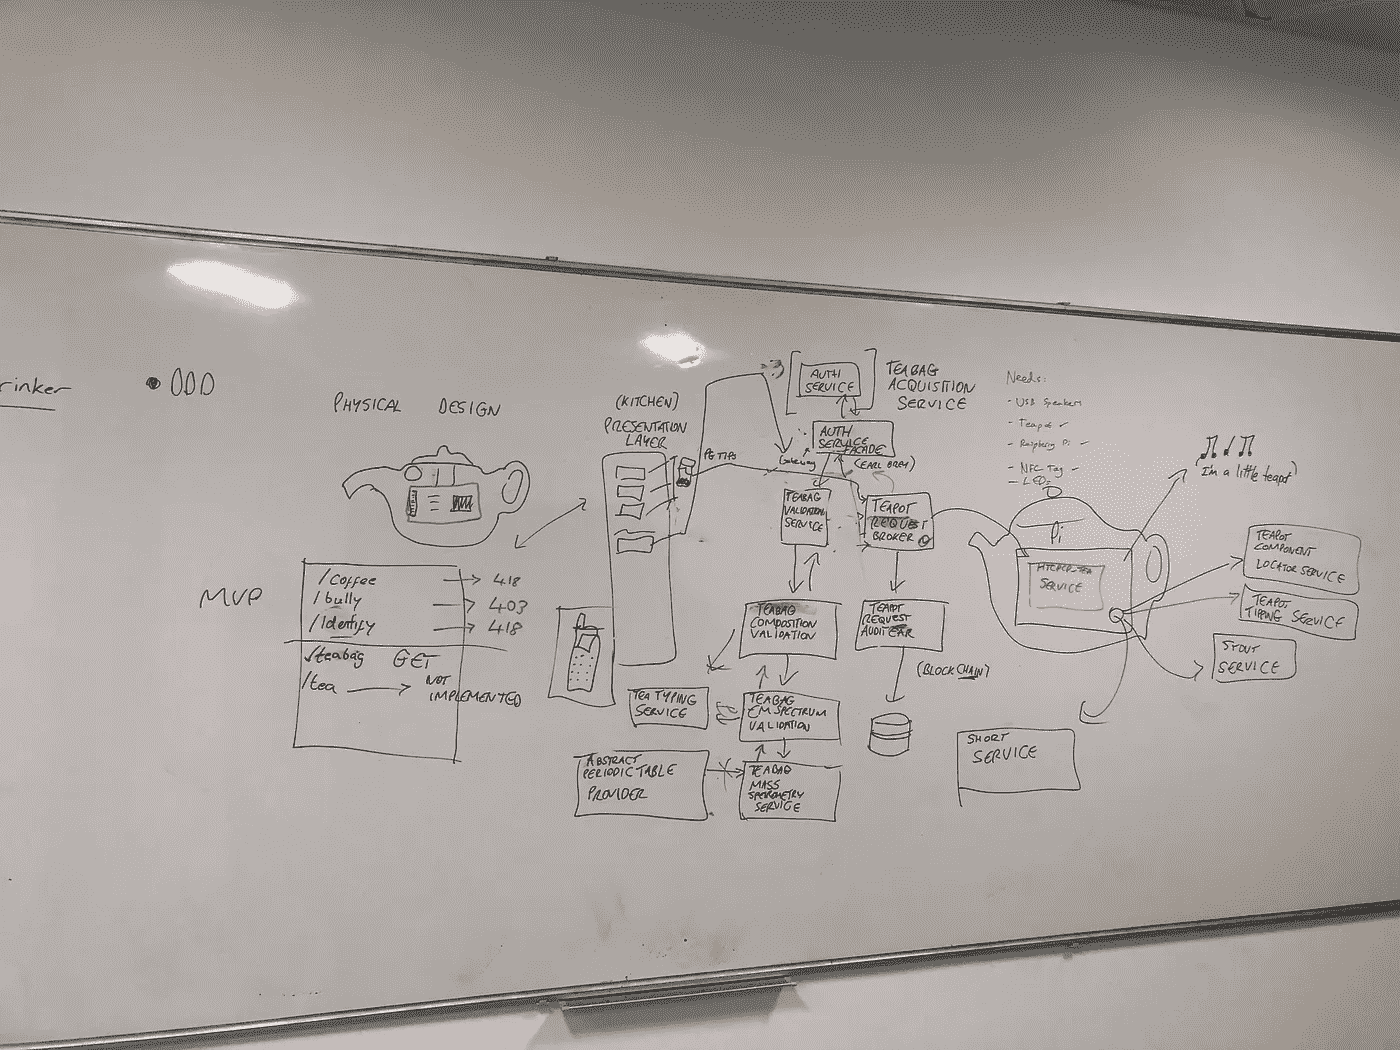 rinker
PHYSICAL DESIGN
MVP
/coffee → 418
/bully → 403
/identify → 418
/teabag GET
/tea → NOT
IMPLEMENTED
(KITCHEN)
PRESENTATION
LAYER
PG TIPS
AUTH
SERVICE
TEABAG
ACQUISITION
SERVICE
AUTH
SERVICE
FACADE
Gateway
(EARL GREY)
TEABAG
VALIDATION
SERVICE
TEAPOT
REQUEST
BROKER
TEABAG
COMPOSITION
VALIDATION
TEAPOT
REQUEST
AUDITEAR
(BLOCKCHAIN)
TEA TYPING
SERVICE
TEABAG
EM SPECTRUM
VALIDATION
ABSTRACT
PERIODIC TABLE
PROVIDER
TEABAG
MASS
SERVICE
Needs:
- USB Speakers
- Teapot ✓
- Raspberry Pi -
- NFC Tag -
- LEDs
Pi
HTCPCP-TEA
SERVICE
(I'm a little teapot)
TEAPOT
COMPONENT
LOCATOR SERVICE
TEAPOT
TIPPING SERVICE
STOUT
SERVICE
SHORT
SERVICE